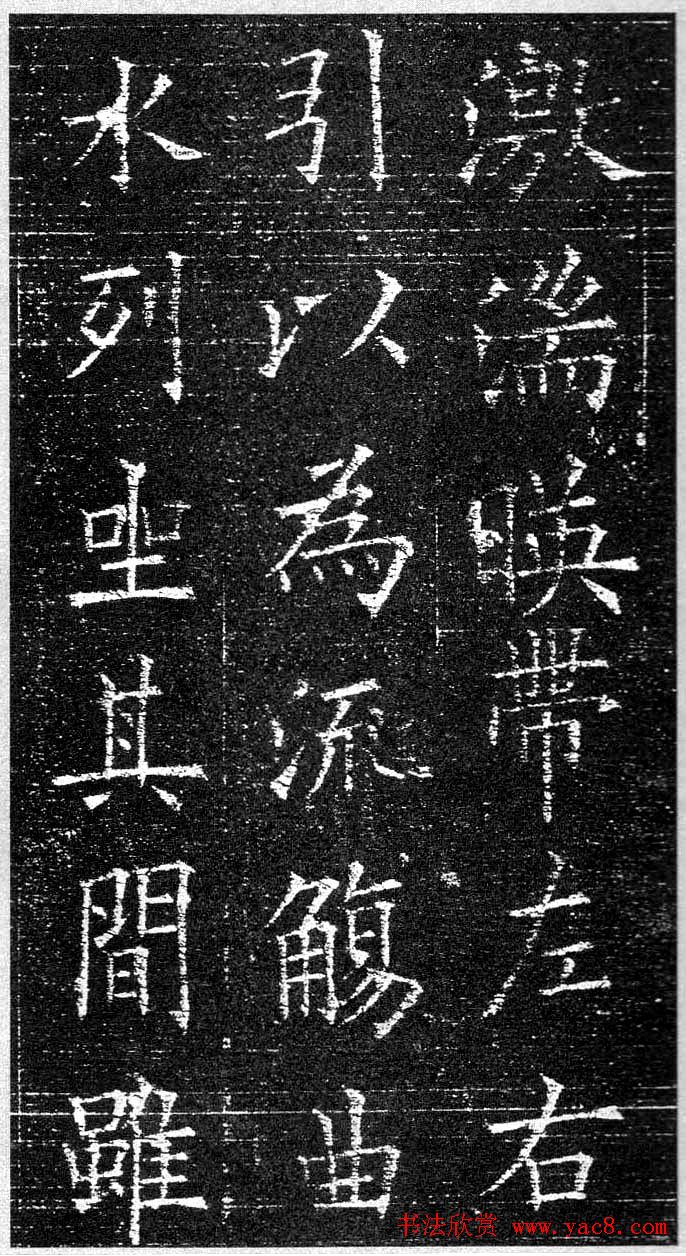 激湍映带左右
引以為流觴曲
水列坐其間雖
书法欣赏 www.yac8.com